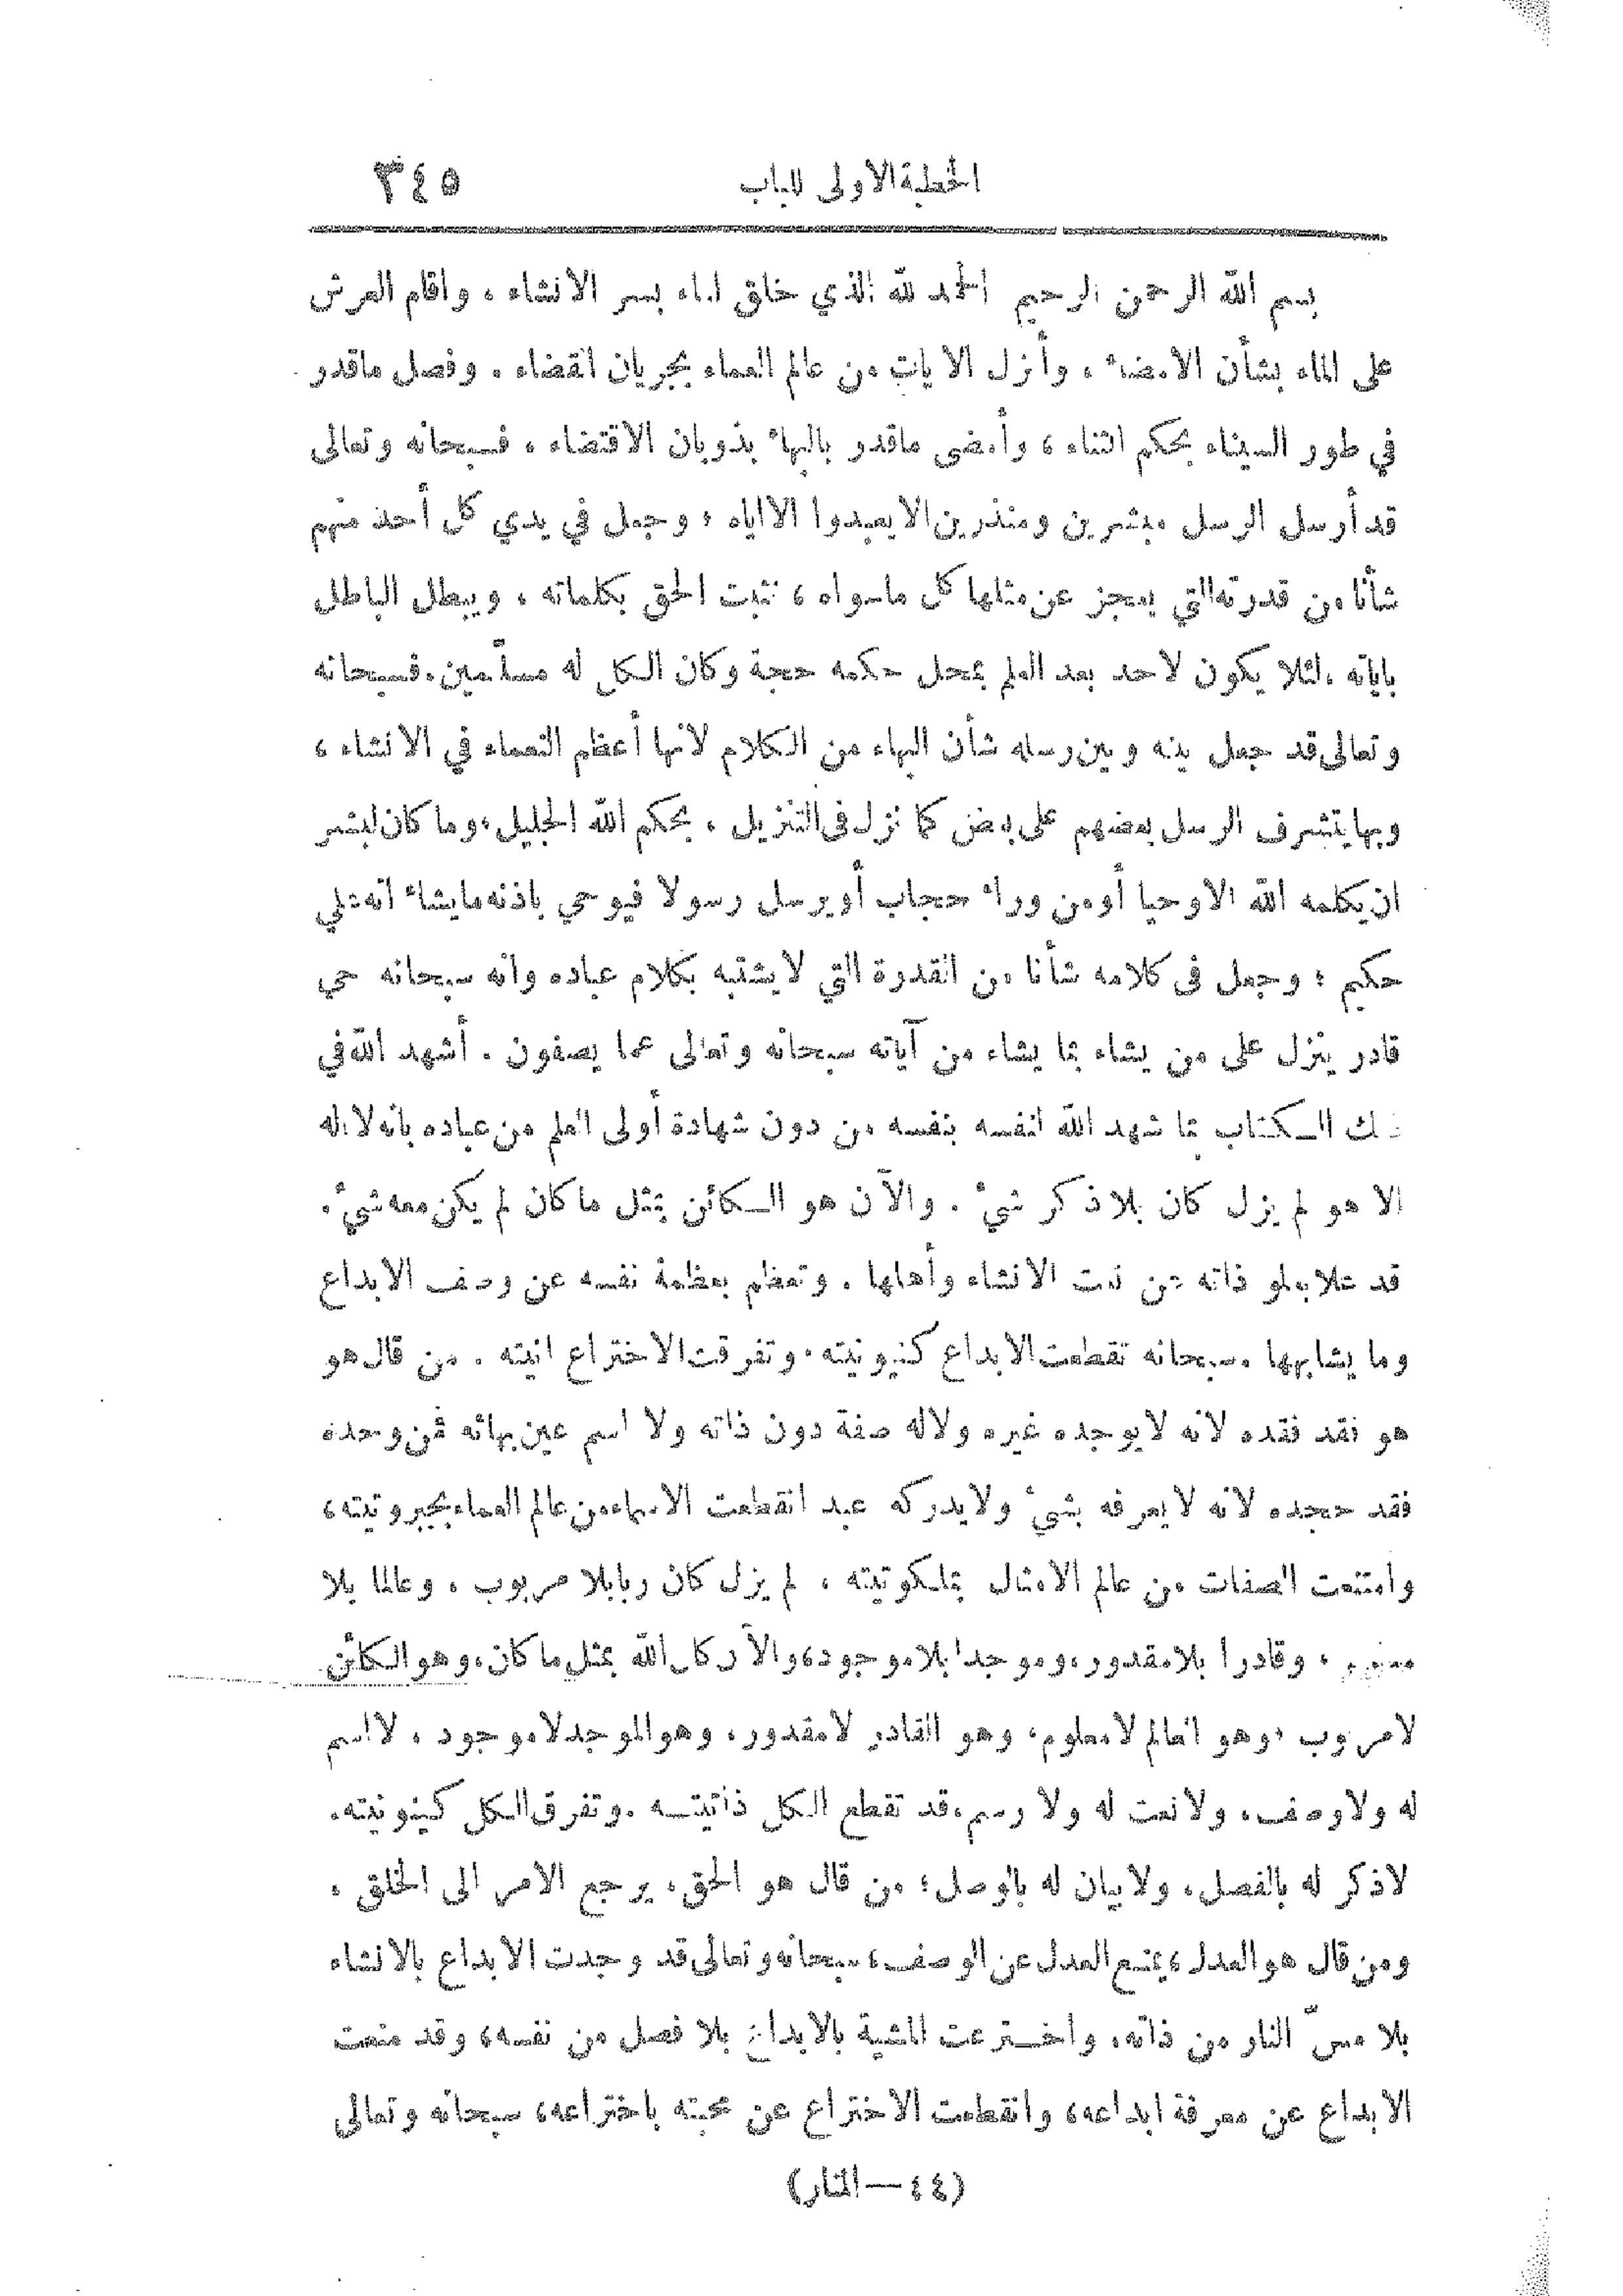 الخطبة الاولى للباب ٣٤٥
بسم الله الرحمن الرحيم الحمد لله الذي خلق الماء بسر الانشاء ، واقام العرش
على الماء بشأن الامضاء ، وأنزل الايات من عالم العماء بجريان القضاء . وفصل ماقدر
في طور السيناء بحكم الثناء ، وأمضى ماقدر بالبهاء بذوبان الاقتضاء ، فسبحانه وتعالى
قد أرسل الرسل مبشرين ومنذرين الا يعبدوا الا اياه ، وجعل في يدي كل أحد منهم
شأنا من قدرته التي يعجز عن مثلها كل ماسواه ، تثبت الحق بكلماته ، ويبطل الباطل
باياته ، لئلا يكون لاحد بعد العلم بمحل حكمه حجة وكان الكل له مسلّمين ، فسبحانه
وتعالى قد جعل بينه وبين رسله شأن البهاء من الكلام لانها أعظم النعماء في الانشاء ،
وبها يتشرف الرسل بعضهم على بعض كما نزل في التنزيل ، بحكم الله الجليل ، وما كان لبشر
ان يكلمه الله الا وحيا أو من وراء حجاب أو يرسل رسولا فيوحي باذنه مايشاء انه علي
حكيم ؛ وجعل في كلامه شأنا من القدرة التي لا يشتبه بكلام عباده وانه سبحانه حي
قادر ينزل على من يشاء بما يشاء من آياته سبحانه وتعالى عما يصفون . أشهد الله في
ذلك الكتاب بما شهد الله لنفسه بنفسه من دون شهادة أولى العلم من عباده بانه لا اله
الا هو لم يزل كان بلا ذكر شيء . والآن هو الكائن بمثل ما كان لم يكن معه شيء .
قد علا بعلو ذاته عن نعت الانشاء وأهلها ، وتعظم بعظمة نفسه عن وصف الابداع
وما يشابهها ، سبحانه تقطعت الابداع كنيونيته ، وتفرقت الاختراع انيته . من قال هو
هو فقد فقده لانه لا يوجده غيره ولا له صفة دون ذاته ولا اسم عين بهائه فمن وحده
فقد جحده لانه لا يعرفه بشيء ولا يدركه عبد انقطعت الاسماء من عالم العماء بجبروتيته ،
وامتنعت الصفات من عالم الامثال بملكوتيته ، لم يزل كان ربا بلا مربوب ، وعالما بلا
معلوم ، وقادرا بلا مقدور ، وموجدا بلا موجود ، والآن كان الله بمثل ما كان ، وهو الكائن
لا مربوب ، وهو العالم لا معلوم ، وهو القادر لا مقدور ، وهو الموجد لا موجود ، لا اسم
له ولا وصف ، ولا نعت له ولا رسم ، قد تقطع الكل ذاتيته ، وتفرق الكل كينونيته ،
لا ذكر له بالفصل ، ولا بيان له بالوصل ؛ من قال هو الحق ، يرجع الامر الى الخلق ،
ومن قال هو العدل ، يمتنع العدل عن الوصف ، سبحانه وتعالى قد وجدت الابداع بالانشاء
بلا مسّ النار من ذاته ، واخترعت المشية بالابداع بلا فصل من نفسه ، وقد منعت
الابداع عن معرفة ابداعه ، وانقطعت الاختراع عن محبته باختراعه ، سبحانه وتعالى
(٤٤ — المنار)